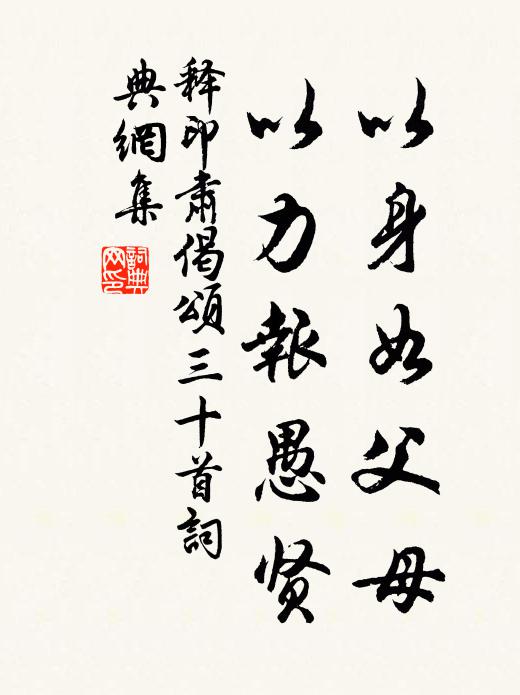 以身如父母
以力報愚贤
释印肃偈頌三十首詞
典網集
詞典
网印